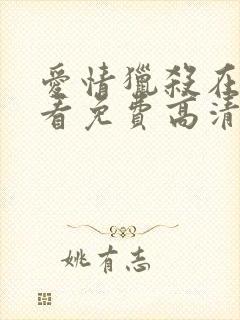 愛情獵殺在
看免費高清
姚有志